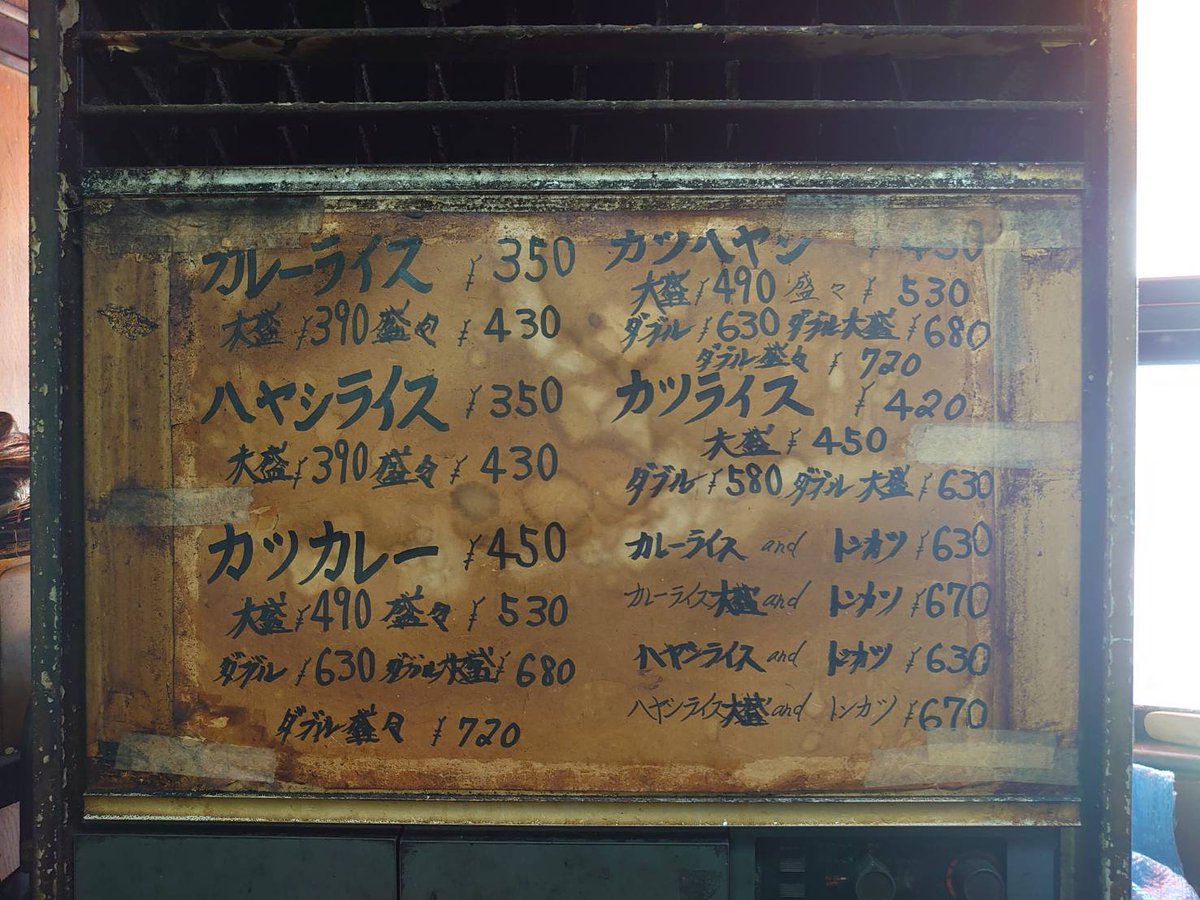 カレーライス ¥350
大盛 ¥390 盛々 ¥430
ハヤシライス ¥350
大盛 ¥390 盛々 ¥430
カツカレー ¥450
大盛 ¥490 盛々 ¥530
ダブル ¥630 ダブル大盛 ¥680
ダブル盛々 ¥720
カツハヤシ ¥450
大盛 ¥490 盛々 ¥530
ダブル ¥630 ダブル大盛 ¥680
ダブル盛々 ¥720
カツライス ¥420
大盛 ¥450
ダブル ¥580 ダブル大盛 ¥630
カレーライス and トンカツ ¥630
カレーライス大盛 and トンカツ ¥670
ハヤシライス and トンカツ ¥630
ハヤシライス大盛 and トンカツ ¥670